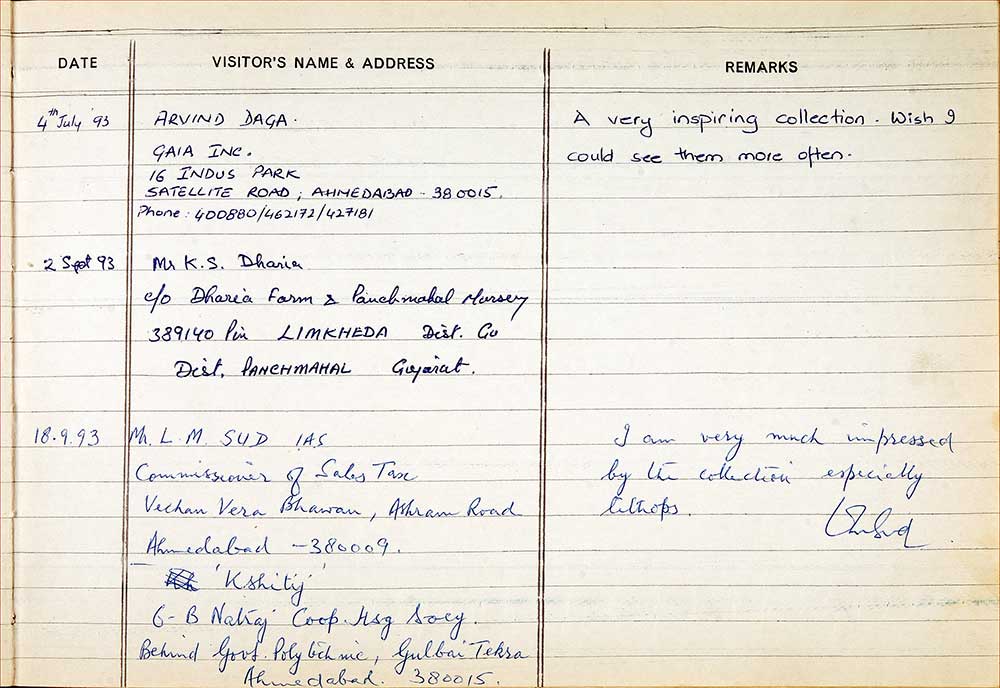 DATE VISITOR'S NAME & ADDRESS REMARKS
4th July '93 ARVIND DAGA. A very inspiring collection. Wish I
GAIA INC. could see them more often.
16 INDUS PARK
SATELLITE ROAD, AHMEDABAD - 380015.
Phone: 400880/462172/427181
2 Sept 93 Mr K.S. Dharia
c/o Dharia Farm & Panchmahal Nursery
389140 Pin LIMKHEDA Dist. Gu
Dist. PANCHMAHAL Gujarat.
18.9.93 Mr. L. M. SUD IAS I am very much impressed
Commissioner of Sales Tax by the collection especially
Vechan Vera Bhawan, Ashram Road lithops.
Ahmedabad - 380009.
'Kshitij'
6-B Natraj Coop. Hsg Socy.
Behind Govt. Polytechnic, Gulbai Tekra
Ahmedabad. 380015.